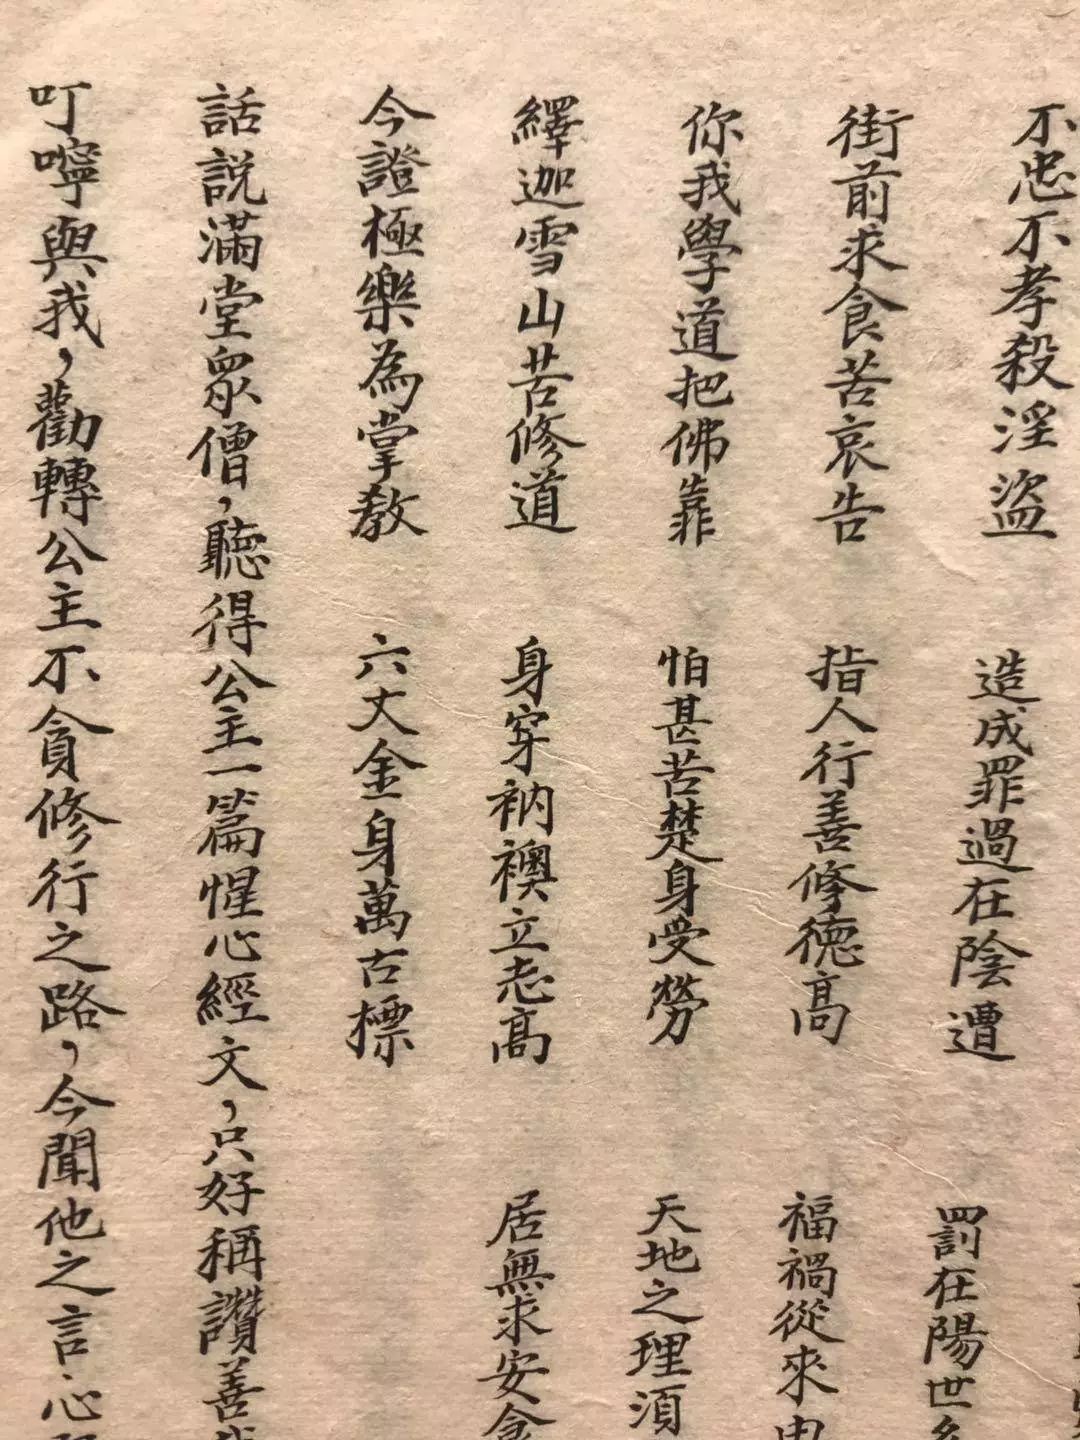 不忠不孝殺淫盜 造成罪過在陰遭 罰在陽世
街前求食苦哀告 指人行善修德高 福禍從來由
你我學道把佛靠 怕甚苦楚身受勞 天地之理須
繹迦雪山苦修道 身穿衲襖立志高 居無求安食
今證極樂為掌教 六丈金身萬古標
話說滿堂眾僧，聽得公主一篇惺心經文，只好稱讚善哉
叮嚀與我，勸轉公主不貪修行之路，今聞他之言，心